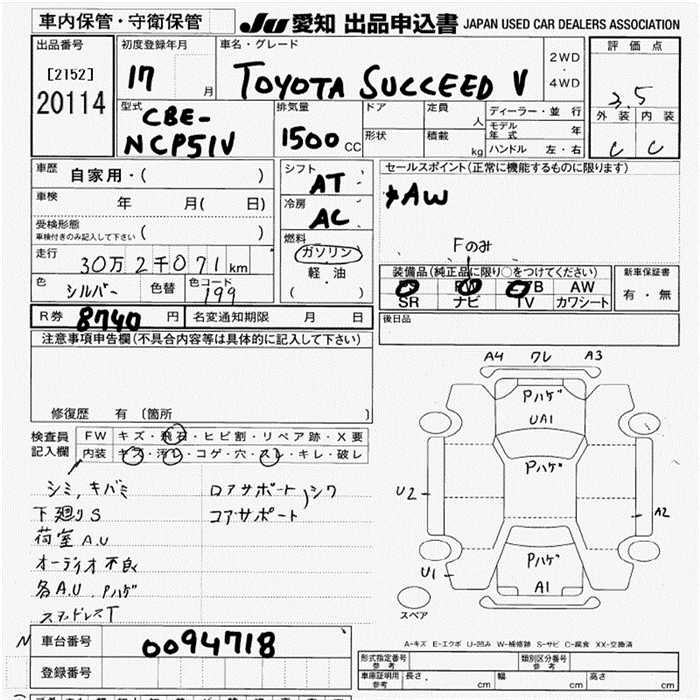 車内保管・守衛保管 JU 愛知 出品申込書 JAPAN USED CAR DEALERS ASSOCIATION
出品番号
[2152]
20114
初度登録年月
17 月
車名・グレード
TOYOTA SUCCEED V
2WD
・
4WD
評価点
3.5
外装 内装
C C
型式
CBE-
NCP51V
排気量
1500 CC
ドア
形状
定員 人
積載 kg
ディーラー・並行
モデル年式 年
ハンドル 左・右
車歴 自家用・( )
車検 年 月( 日)
受検形態
車検付きのみ記入して下さい ( )
走行 30万2千071km
色 シルバー 色替 色コード 199
シフト AT
冷房 AC
燃料
ガソリン
軽・油
( )
セールスポイント(正常に機能するものに限ります)
*AW
Fのみ
装備品(純正品に限り○をつけてください)
TB AW
SR ナビ TV カワシート
新車保証書
有・無
R券 8740 円 名変通知期限 月 日
後日品
注意事項申告欄(不具合内容等は具体的に記入して下さい)
修復歴 有 〔箇所 〕
検査員記入欄
FW キズ・飛石・ヒビ割・リペア跡・X要
内装 キズ・汚レ・コゲ・穴・スレ・キレ・破レ
シミ,キバミ
下廻りS
荷室A.U
オーディオ不良
各A.U.Pハゲ
スタッドレスT
ロアサポート
コアサポート
シワ
A4 ワレ A3
Pハゲ
UA1
Pハゲ
U2
A2
Pハゲ
A1
U1
スペア
A-キズ E-エクボ U-凹み W-補修跡 S-サビ C-腐食 XX-交換済
N 車台番号 0094718
登録番号
形式指定番号 参考
類別区分番号 参考
車庫証明用 参考 長さ. cm 幅. cm 高さ cm